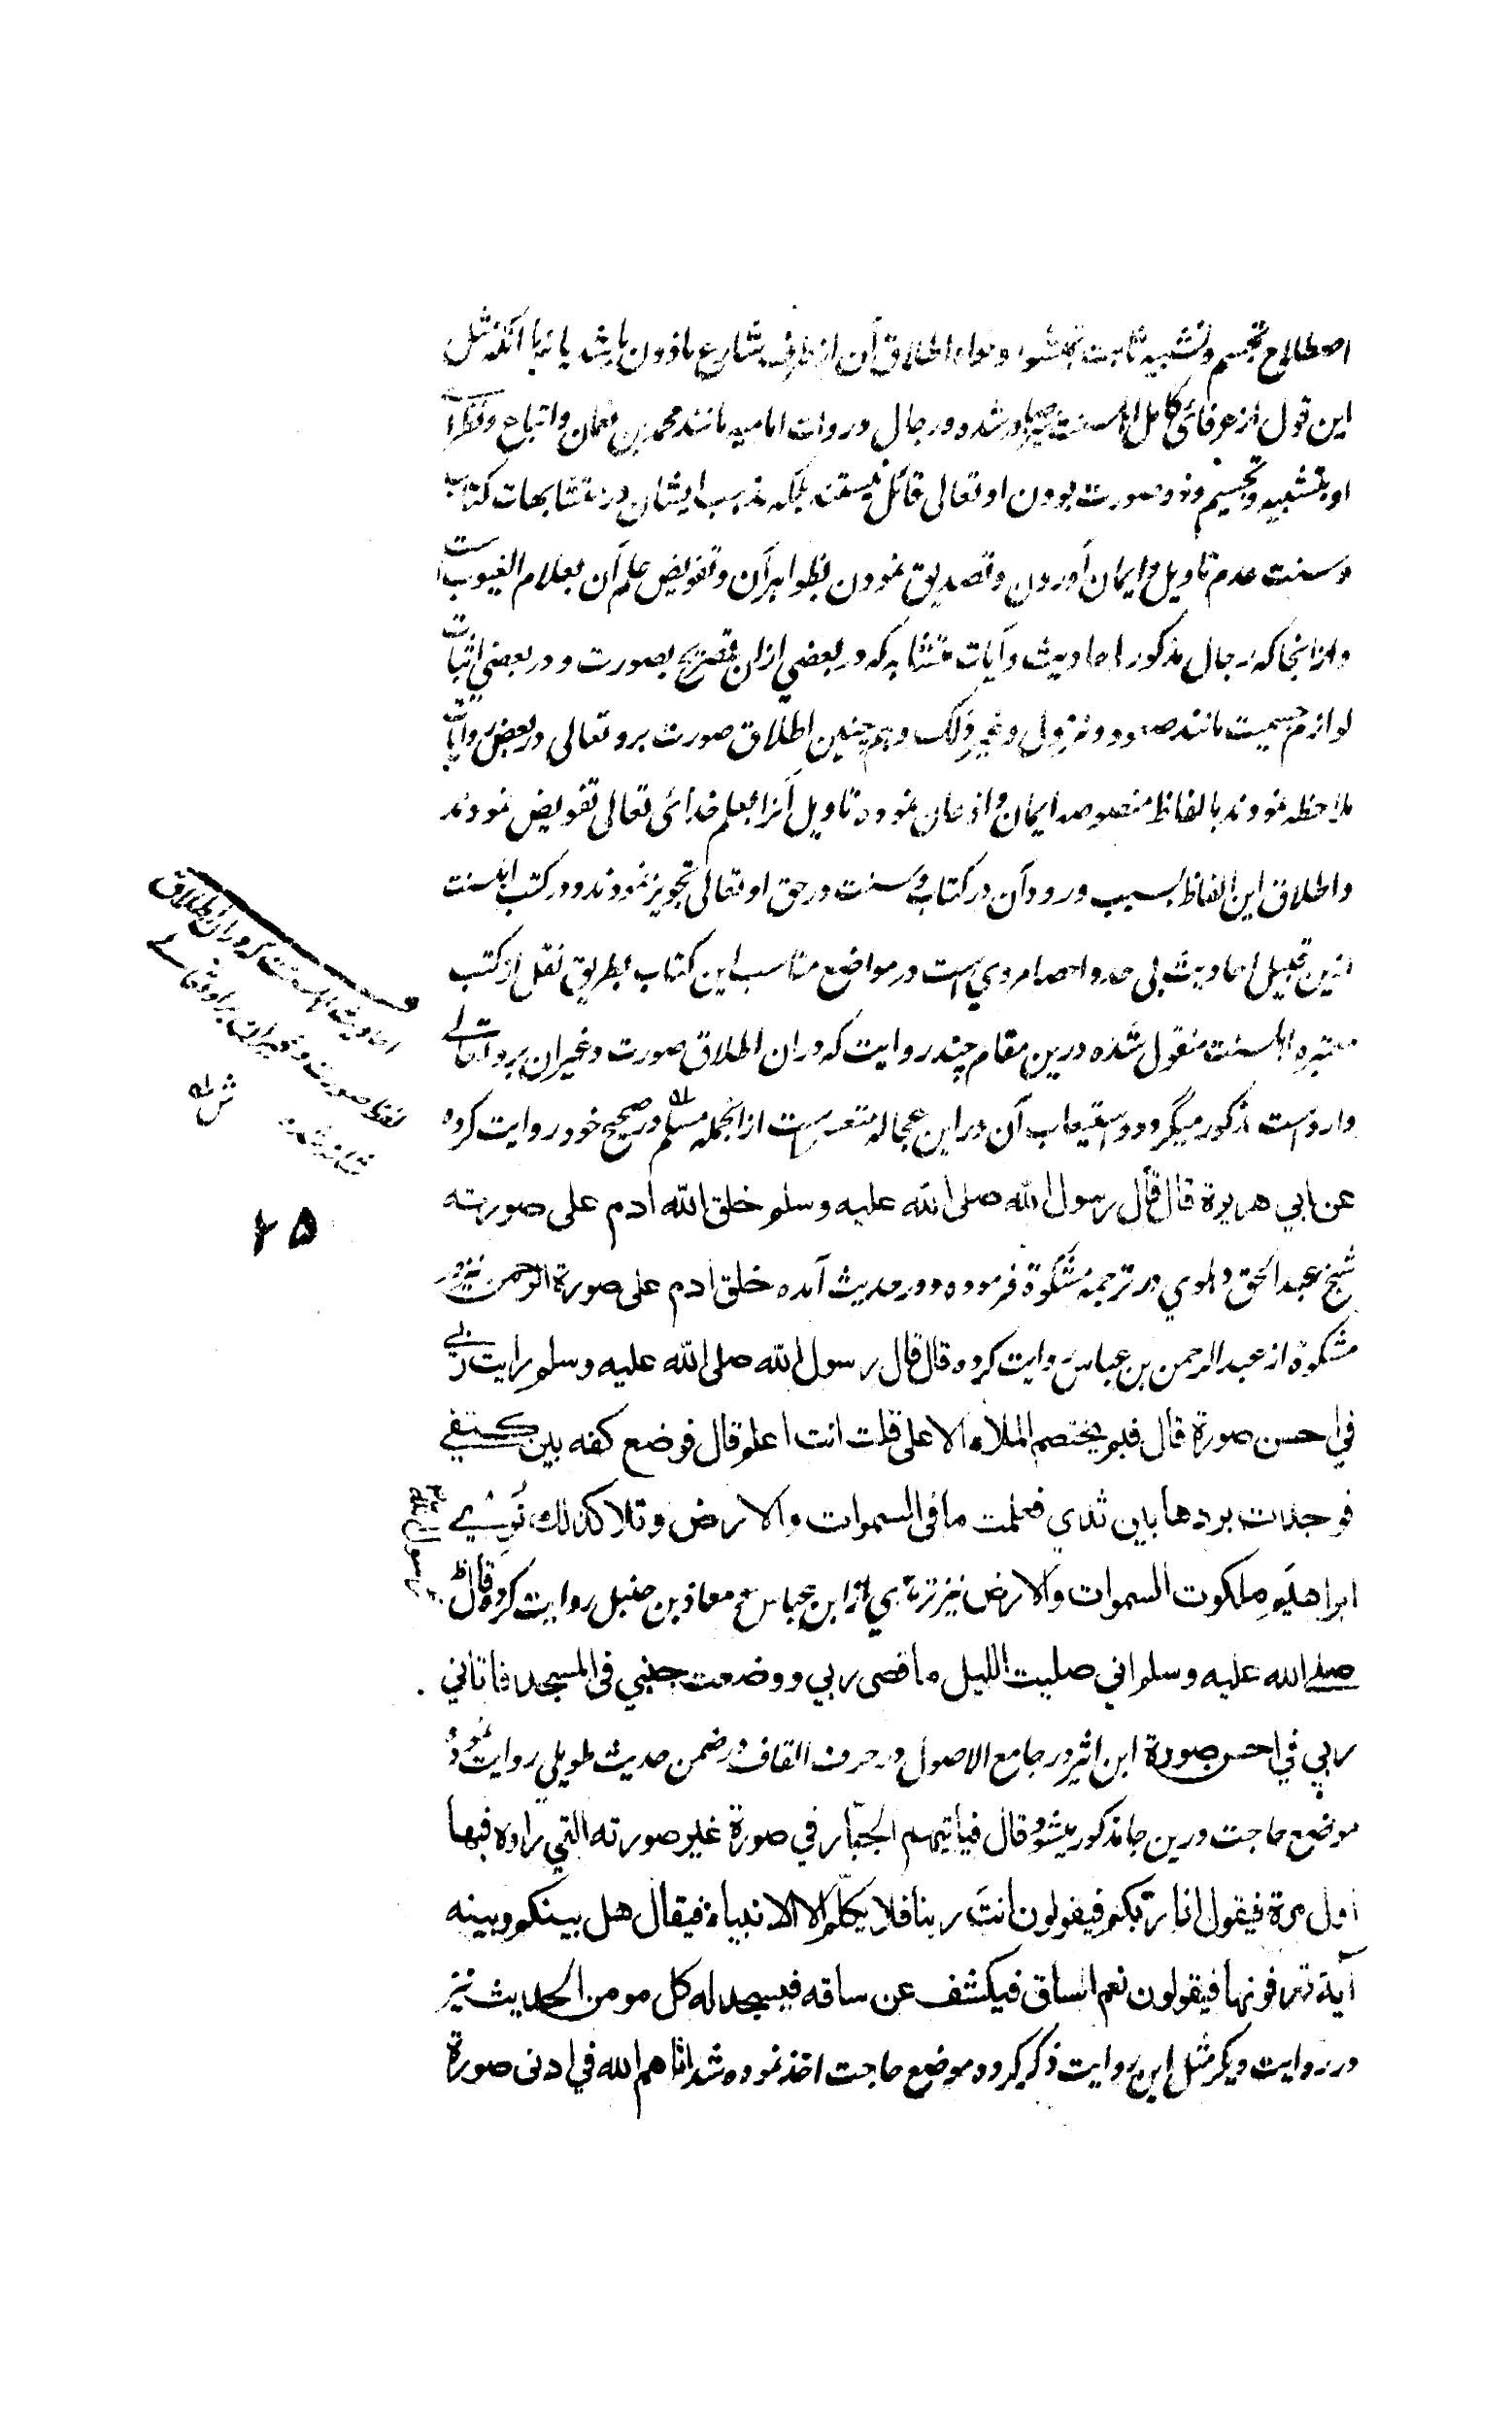 اصطلاح تجسم و تشبیه ثابت نمیشود و نواه اطلاق آن از طرف شارع ماذون باشد یا نه ثانیا آنکه مثل
این قول از عرفائی کامل اهلسنت صادر شده و رجال و روات امامیه مانند محمد بن نعمان و اتباع و نظراء
او بتشبیه و تجسیم و ذو صورت بودن او تعالی قائل نیستند بلکه مذهب ایشان در متشابهات کتاب
و سنت عدم تاویل و ایمان آوردن و تصدیق نمودن بظواهر آن و تفویض علم آن بعلام الغیوب است
و از آنجا که رجال مذکور احادیث و آیات متشابه که در بعضي ازان تصریح بصورت و در بعضي اثبات
لوازم جسمیت مانند صعود و نزول و غیر ذلک و همچنین اطلاق صورت برو تعالی در بعض روایات
ملاحظه نمودند بالفاظ منصوصه ایمان و اذعان نموده تاویل آنرا بعلم خدائی تعالی تفویض نمودند
و اطلاق این الفاظ بسبب ورود آن در کتاب و سنت در حق او تعالی تجویز نمودند و در کتب اهلسنت
ازین قبیل احادیث بی حد و احصا مروي است در مواضع مناسب این کتاب بطریق نقل از کتب
معتبره اهلسنت منقول شده درین مقام چند روایت که دران اطلاق صورت و غیر ان برو تعالے
وارد است مذکور میگردد و استیعاب آن در این عجاله متعسر است ازانجمله مسلم در صحیح خود روایت کرده
عن ابي هريرة قال قال رسول الله صلى الله عليه وسلم خلق الله ادم على صورته
شیخ عبد الحق دهلوي در ترجمه مشکوة فرموده و در حدیث آمده خلق ادم على صورة الرحمن نیز در
مشکوة از عبد الرحمن بن عباس روایت کرده قال قال رسول الله صلى الله عليه وسلم رايت ربي
في احسن صورة قال فبم يختصم الملاء الاعلى قلت انت اعلم قال فوضع كفه بين كتفي
فوجدت بردها بين ثدي فعلمت ما في السموات والارض وتلا كذلك نري
ابراهيم ملكوت السموات والارض نیز ترمذي از ابن عباس و معاذ بن جبل روایت کرده قال
رسول الله
صلے الله عليه وسلم اني صليت الليل ما قضى ربي ووضعت جنبي في المسجد فاتاني
ربي في احسن صورة ابن اثیر در جامع الاصول در حرف القاف در ضمن حدیث طویلي روایت نموده
موضع حاجت درین جا مذکور میشود قال فيأتيهم الجبّار في صورة غير صورته التي راوه فيها
اول مرة فيقول انا ربّكم فيقولون انتَ ربنا فلا يكلّم الا الانبياء فيقال هل بينكم وبينه
آية تعرفونها فيقولون نعم الساق فيكشف عن ساقه فيسجد له كل مومن الحديث نیز
در روایت دیگر مثل این روایت ذکر کرده موضع حاجت اخذ نموده شد اتاهم الله في ادنى صورة
احادیث اهلسنت که دران اطلاق
لفظ صورت و غیر ان برو تعالے
۲۵